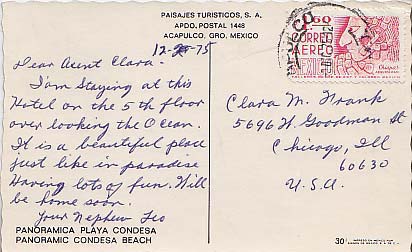 PAISAJES TURISTICOS, S. A.
APDO. POSTAL 1448
ACAPULCO, GRO. MEXICO
12-25-75
Dear Aunt Clara.
I am Staying at this
Hotel on the 5th floor
over looking the Ocean.
It is a beautiful place
just like in paradise
Having lots of fun. Will
be home soon.
Your Nephew Leo
PANORAMICA PLAYA CONDESA
PANORAMIC CONDESA BEACH
MEXICO
1.60
CORREO
AEREO
Clara M. Frank
5696 N. Goodman St
Chicago, Ill
60630
U.S.A.
30